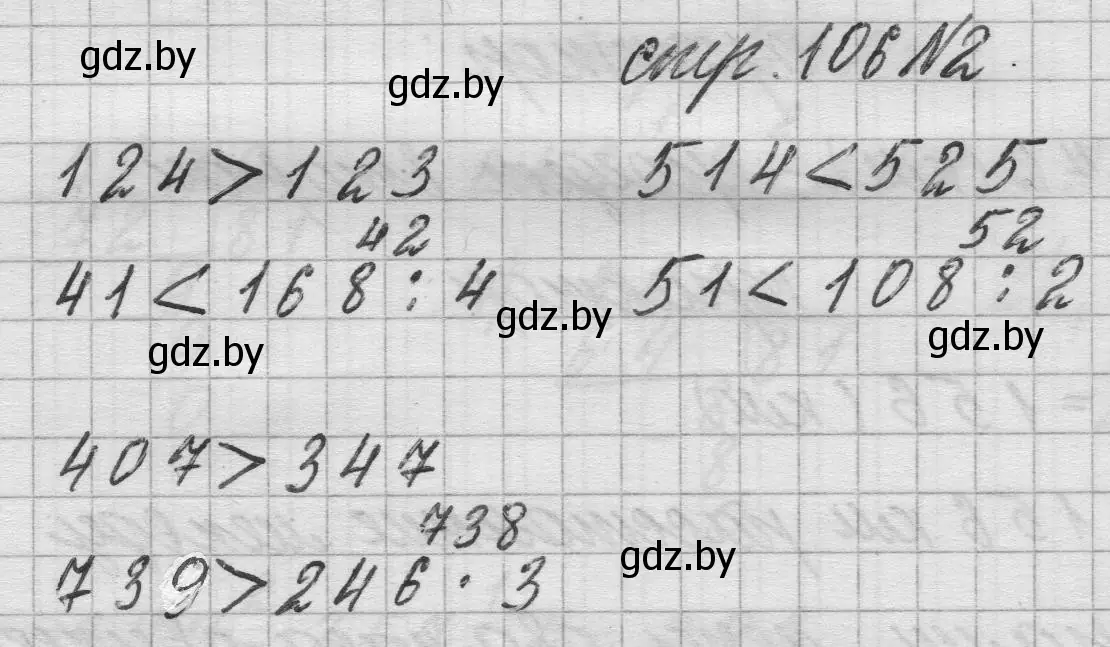 gdz.by
стр. 106 №2.
gdz.by
124 > 123 514 < 525
42 52
41 < 168 : 4 51 < 108 : 2
gdz.by
gdz.by
gdz.by
407 > 347
738
gdz.by
739 > 246 · 3